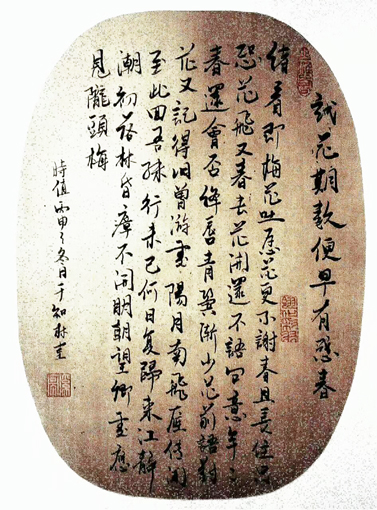 試花期數便早有感春
緒看即梅花吐愿花更不謝春且長住只
恐花飛又春去花開還不語問意年年
春還會否絳唇青鬢漸少花前語對
花又記得旧曾游處陽月南飛雁傳聞
至此回吾殊行未已何日復歸來江靜
潮初落林昏瘴不開明朝望鄉處應
見隴頭梅
時值丙申之冬日于知林堂